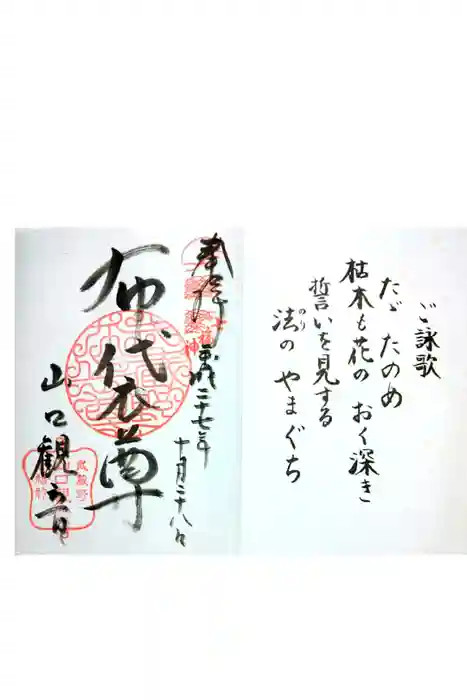 ご詠歌
たゞ たのめ
枯木も花の おく深き
誓いを見する
法の やまぐち
のり
奉拝
平成二十七年
十月二十八日
布袋尊
山口観音
武蔵野